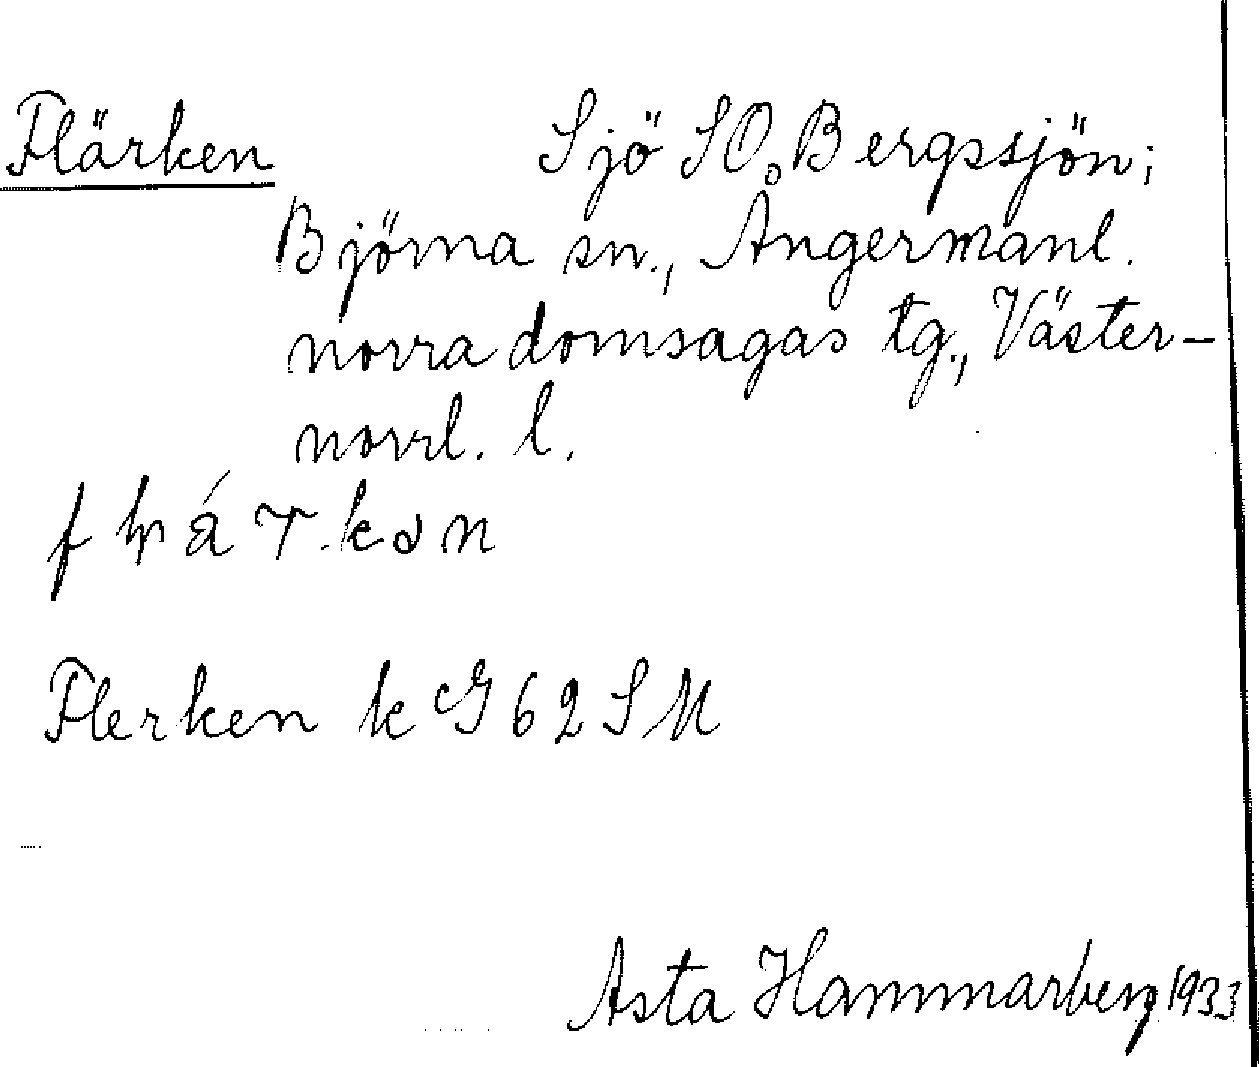 Flärken Sjö SO. Bergssjön;
Björna sn., Ångermanl.
norra domsagas tg., Väster-
norrl. l.
Flerken k G 62 S M
Asta Hammarberg 1933